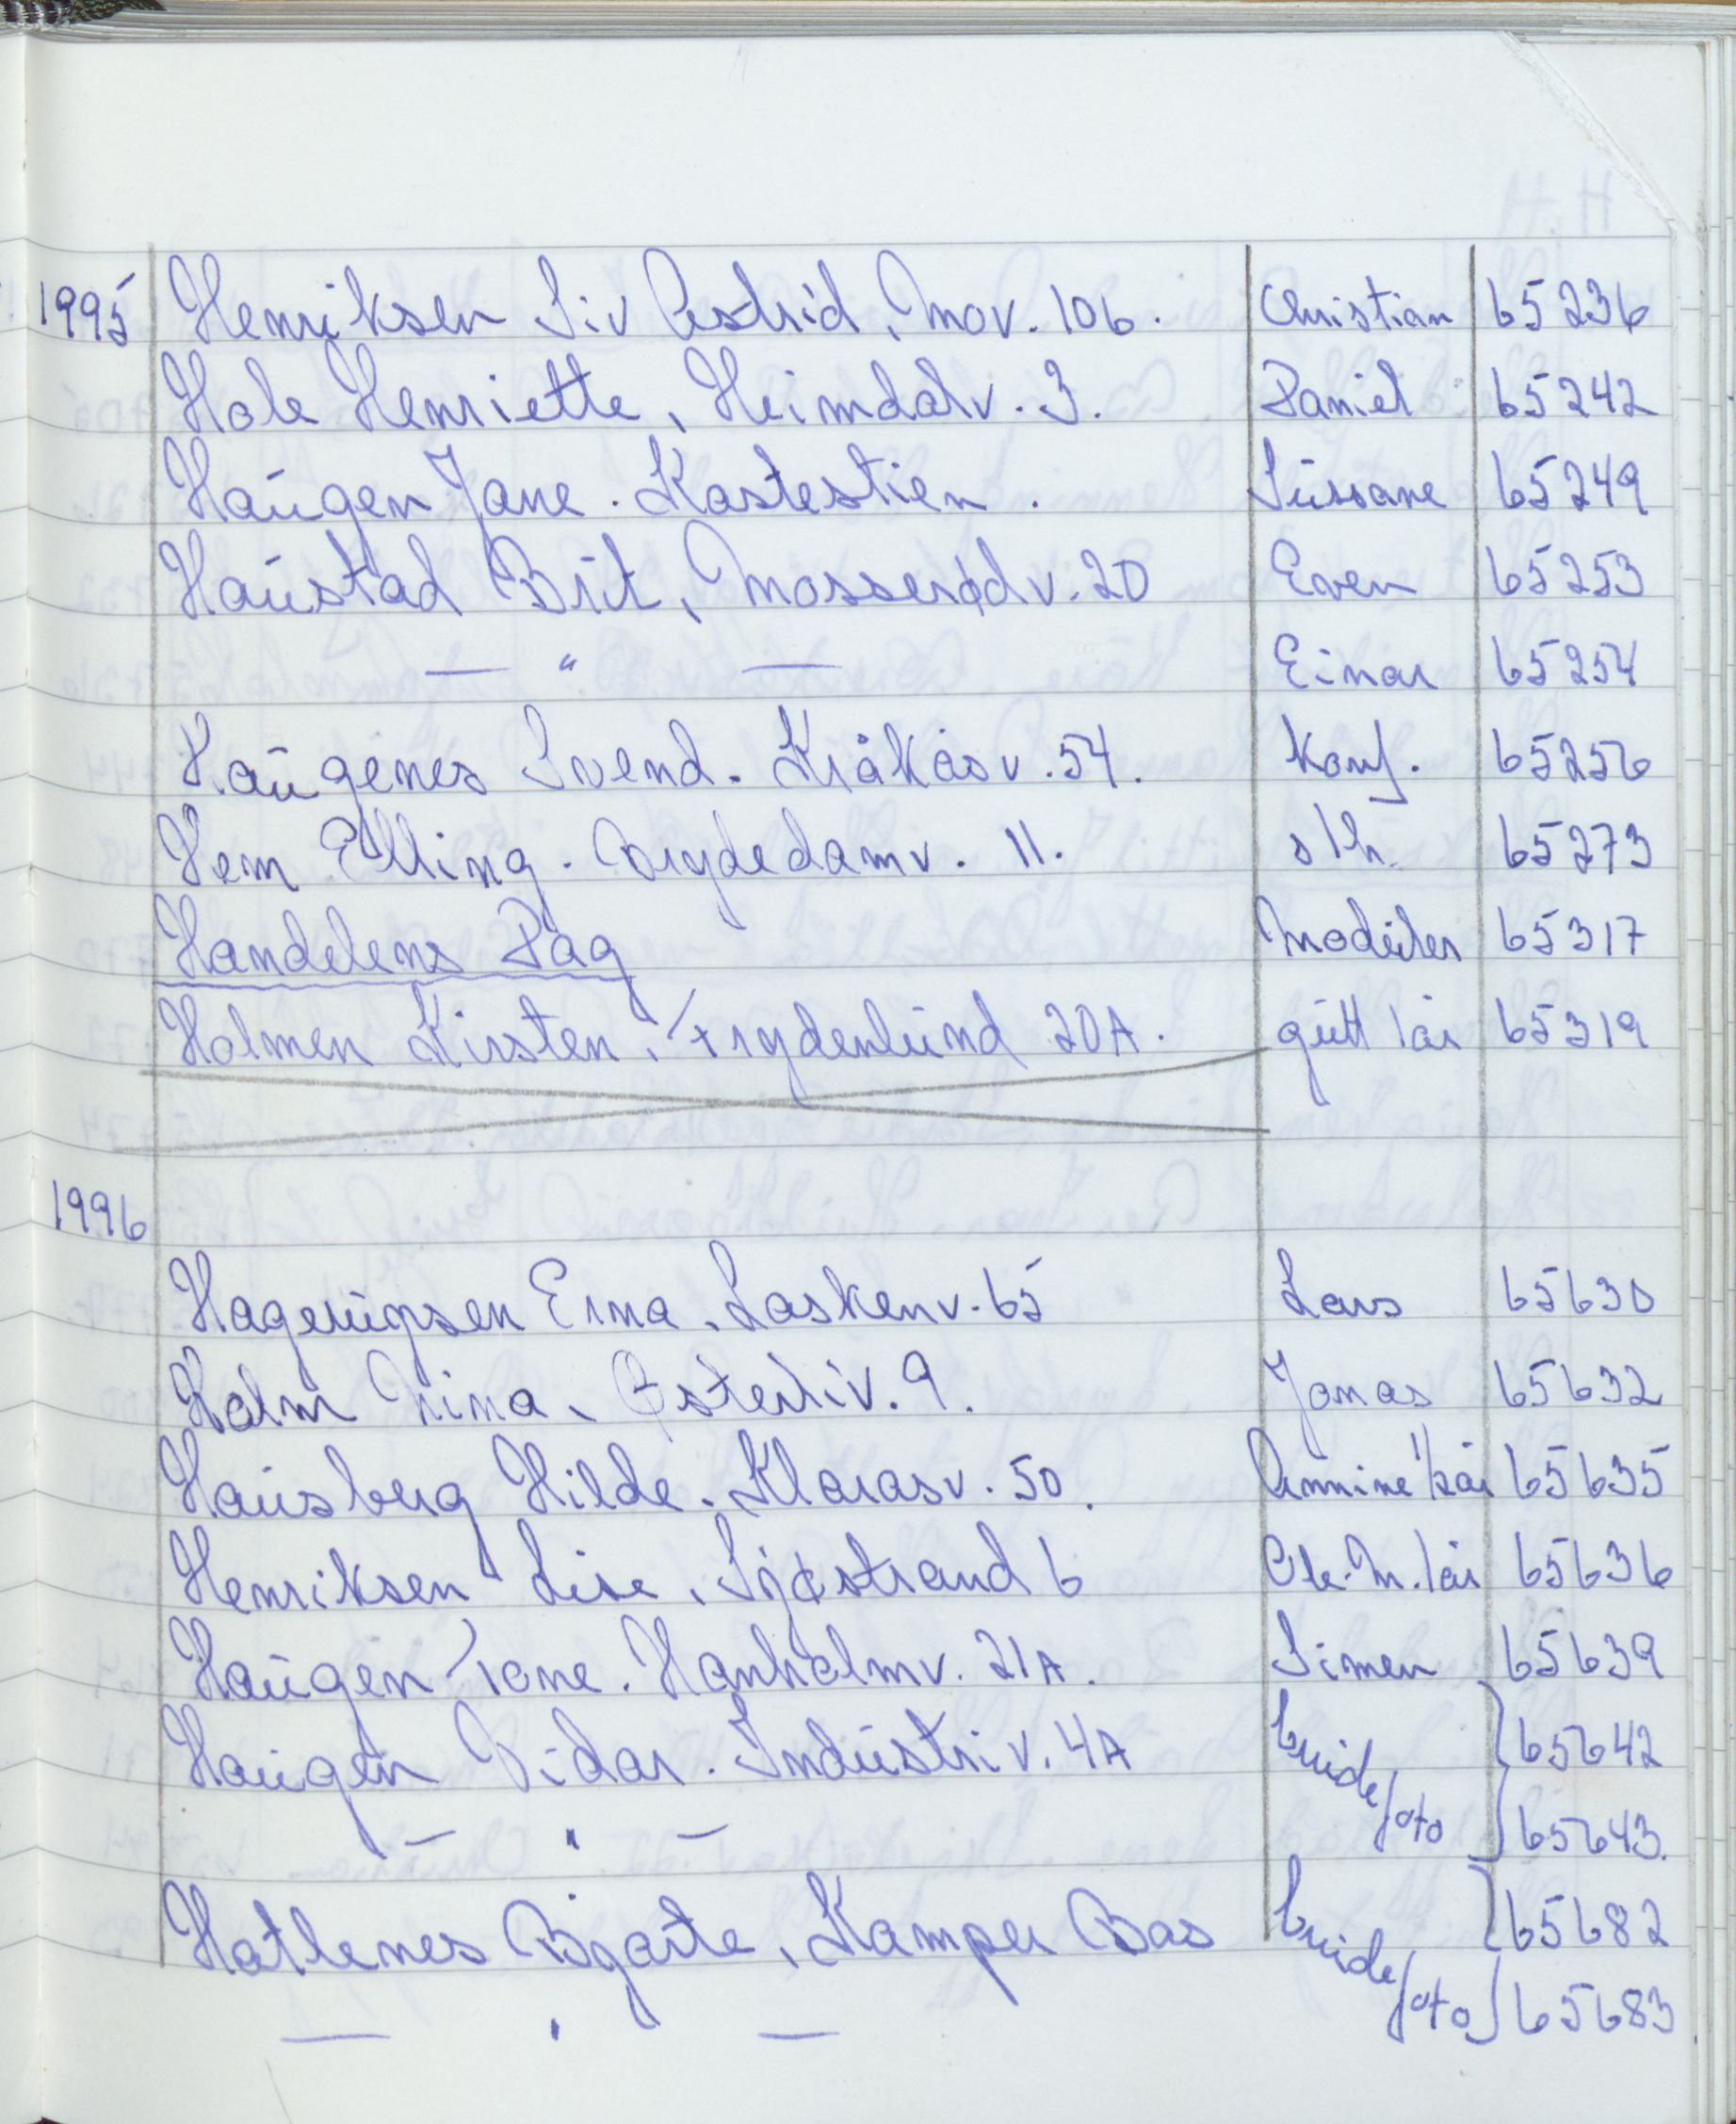 1995 Henriksen Siv Astrid, Mov. 106. Christian 65236
Hole Henriette, Heimdalv. 3. Daniel 65242
Haugen Jane. Kastestien. Sussane 65249
Haustad Brit, Mosserødv. 20 Even 65253
— " — Einar 65254
Haugenes Svend. Kråkåsv. 54. Konf. 65256
Hem Elling. Brydedamv. 11. s/h. 65273
Handelens Dag Moduler 65317
Holmen Kirsten, Frydenlund 20A. gutt 1 år 65319
1996
Erna, Laskenv. 65 Lars 65630
Holm Nina, Østerliv. 9. Jonas 65632
Hausberg Hilde. Klarasv. 50. Annine 65635
Henriksen Lise, Sjøstrand 6 Ole.M. 1 år 65636
Haugen Tone. Hanholmv. 21A. Simen 65639
Haugen Vidar. Industriv. 4A brude 65642
— " — foto 65643.
Hatlenes Bjarte, Kamper Bas brude 65682
— " — foto 65683